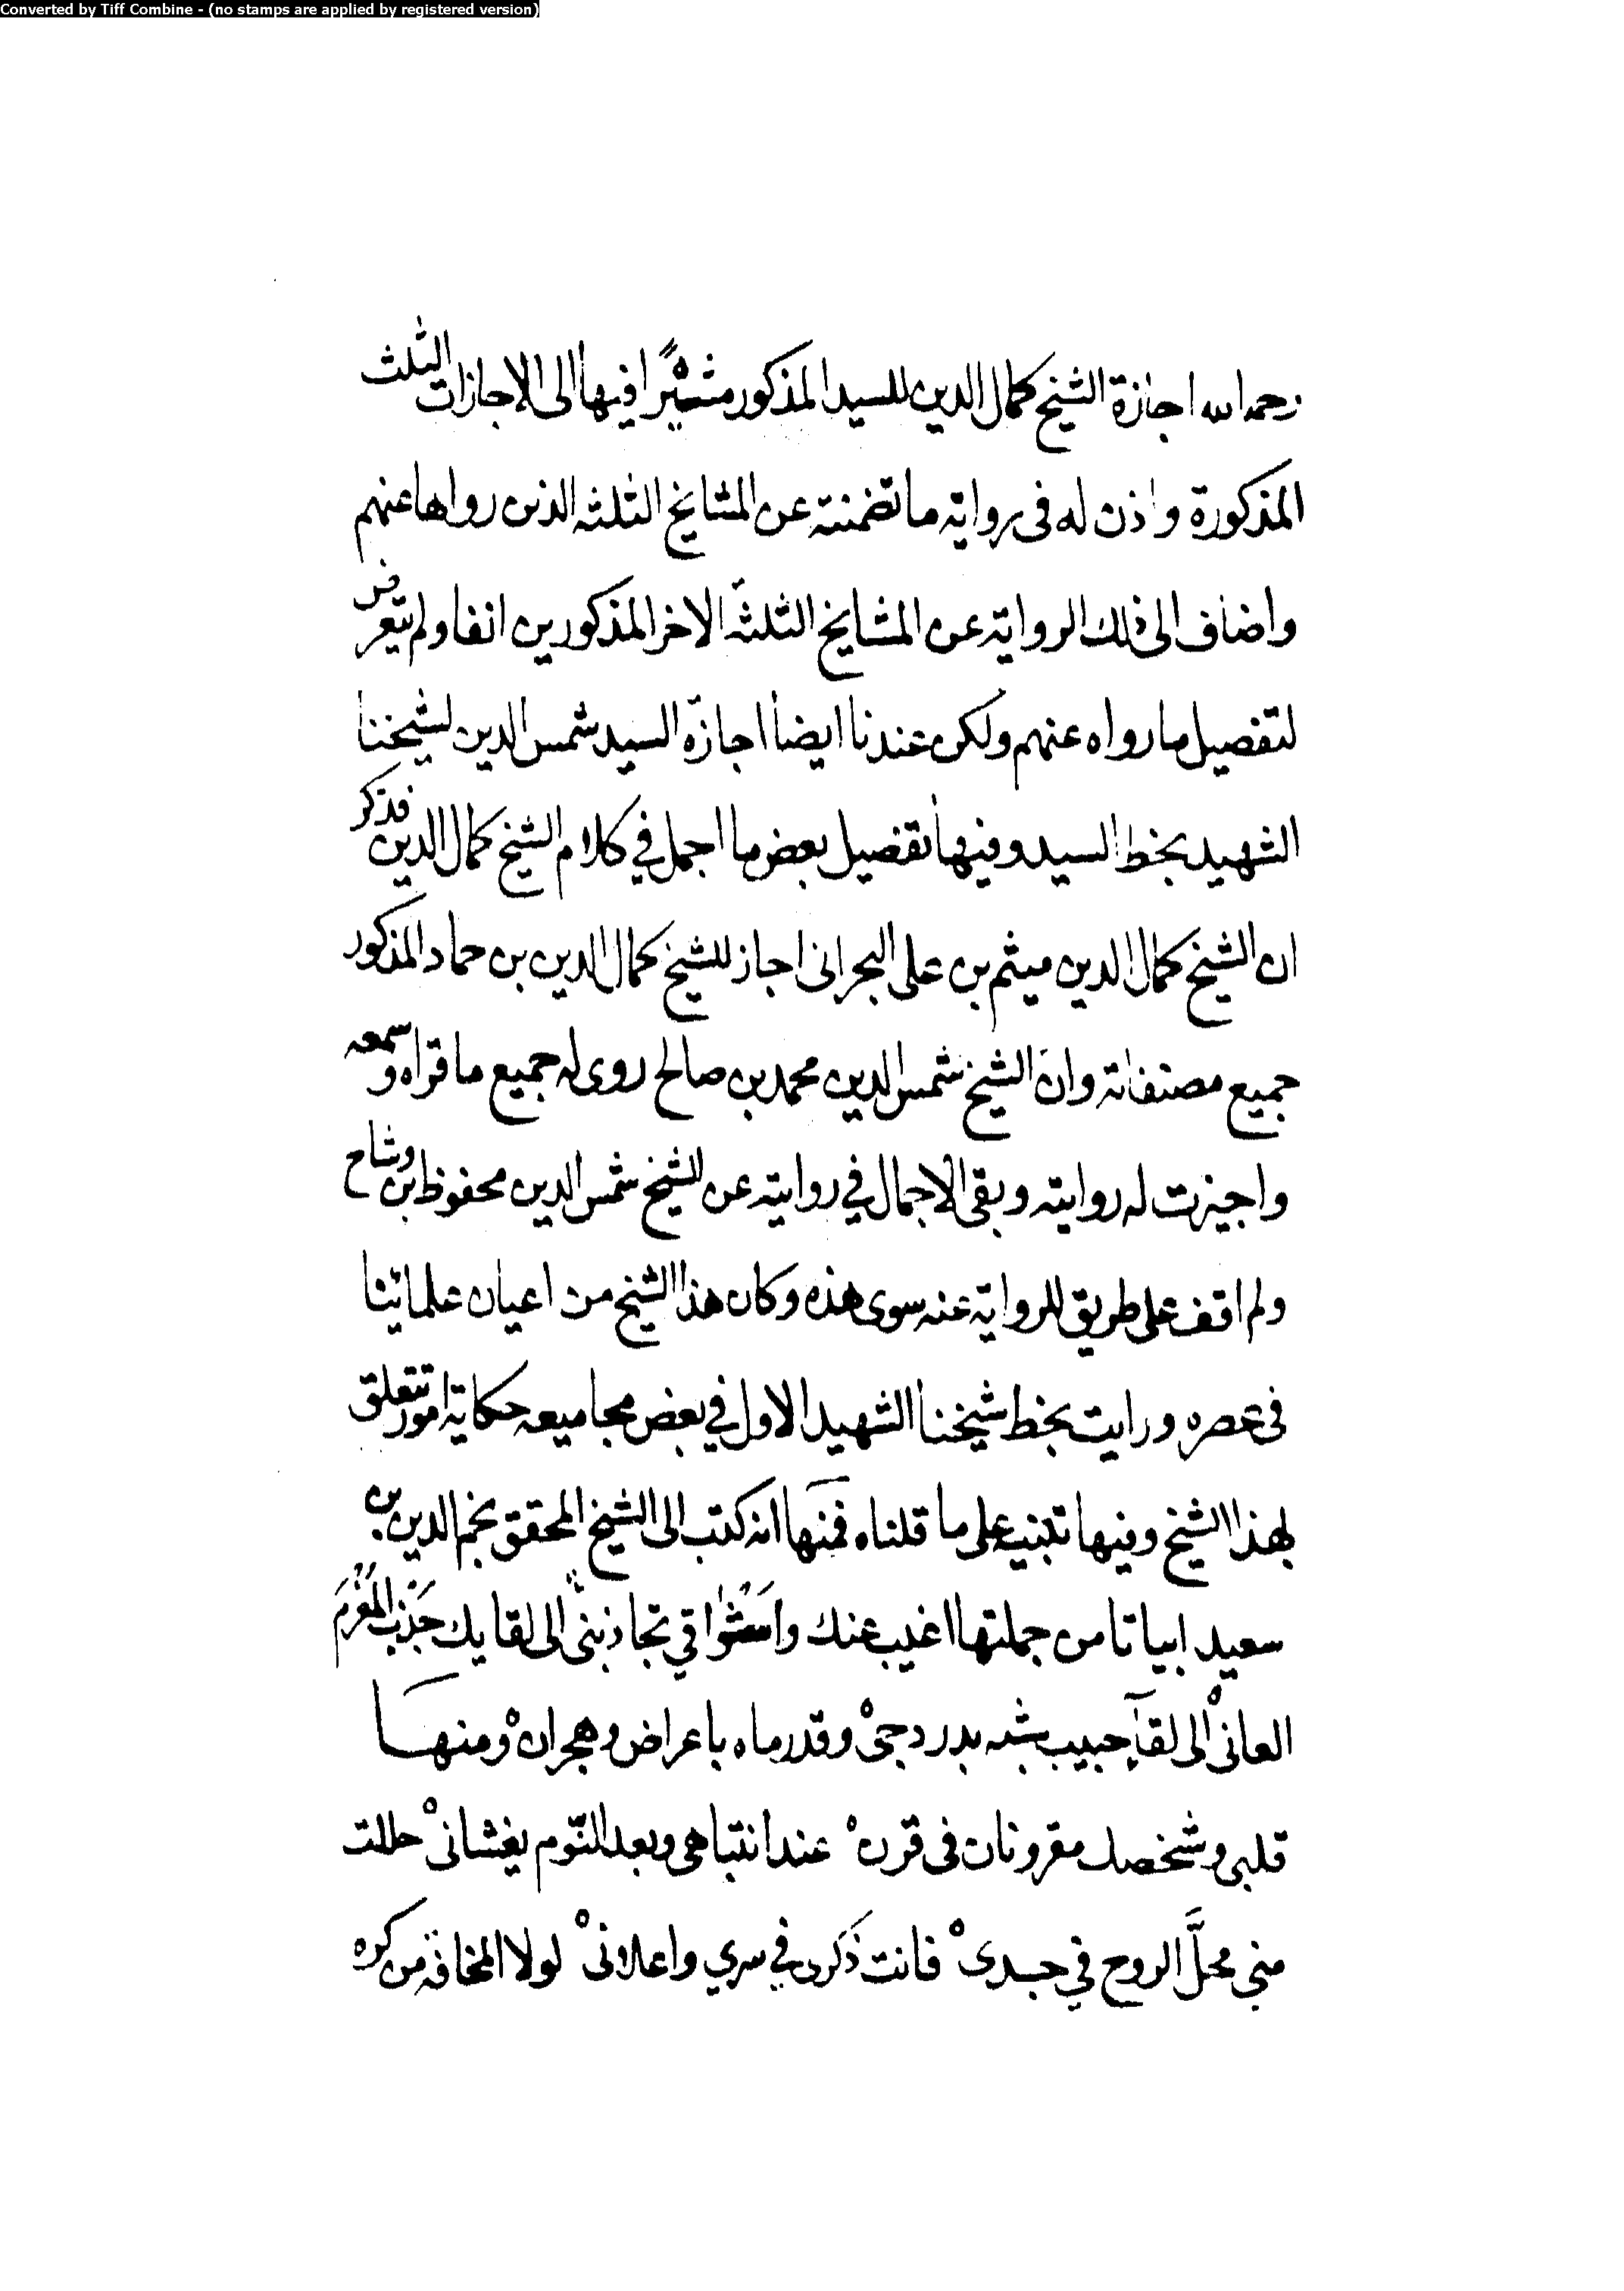 Converted by Tiff Combine - (no stamps are applied by registered version)
رحمه الله اجازة الشيخ كمال الدين للسيد المذكور مشيرًا فيها الى الاجازات الثلث
المذكورة واذن له فى رواية ما تضمنته عن المشايخ الثلثه الذين رواها عنهم
واضاف الى ذلك الرواية عن المشايخ الثلثه الاخر المذكورين انفا ولم يتعرض
لتفصيل ما رواه عنهم ولكن عندنا ايضا اجازة السيد شمس الدين لشيخنا
الشهيد بخط السيد وفيها تفصيل بعض ما اجمل في كلام الشيخ كمال الدين فذكر
ان الشيخ كمال الدين ميثم بن على البحرانى اجاز للشيخ كمال الدين بن حماد المذكور
جميع مصنفاته وان الشيخ شمس الدين محمد بن صالح روى له جميع ما قراه وسمعه
واجيزت له روايته وبقى الاجمال في روايته عن الشيخ شمس الدين محفوظ بن وشاح
ولم اقف على طريق للرواية عنه سوى هذه وكان هذا الشيخ من اعيان علمائنا
فى عصره ورايت بخط شيخنا الشهيد الاول في بعض مجاميعه حكاية امور تتعلق
بهذا الشيخ وفيها تنبيه على ما قلناه فمنها انه كتب الى الشيخ المحقق نجم الدين بن
سعيد ابياتا من جملتها اغيب عنك واشواقي تجاذبنى الى لقايك جذب المغرم
العانى الى لقآء حبيب شبه بدر دجى وقد رماه باعراض وهجران ومنهـــا
قلبى وشخصك مقرونان فى قرن عند انتباهى وبعد النّوم يغشانى حللت
منى محلّ الروح في جسدى فانت ذكرى في سري واعلانى لولا المخافة من كره